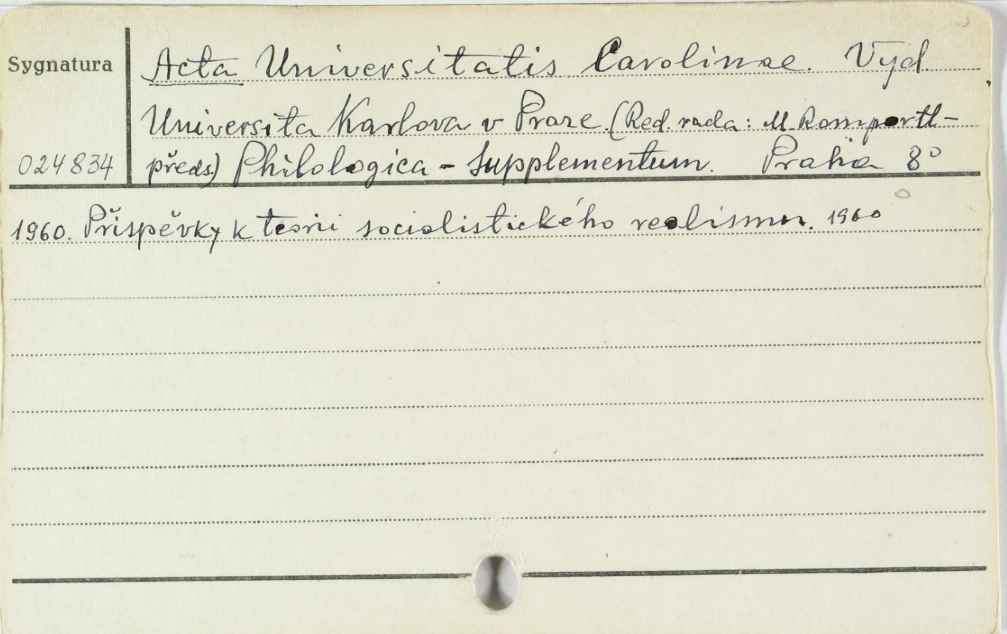 Sygnatura
Acta Universitatis Carolinae. Vyd
Universita Karlova v Praze (Red. rada: M. Romportl-
024834
předs) Philologica - Supplementum. Praha 8°
1960. Příspěvky k teorii socialistického realismu. 1960